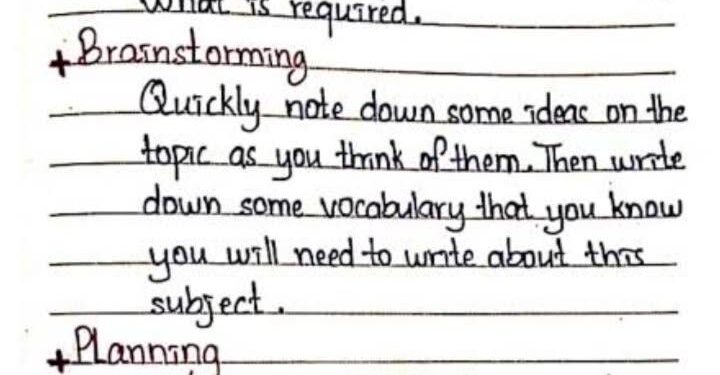 what is required.
+ Brainstorming
Quickly note down some ideas on the
topic as you think of them. Then write
down some vocabulary that you know
you will need to write about this
subject.
+ Planning